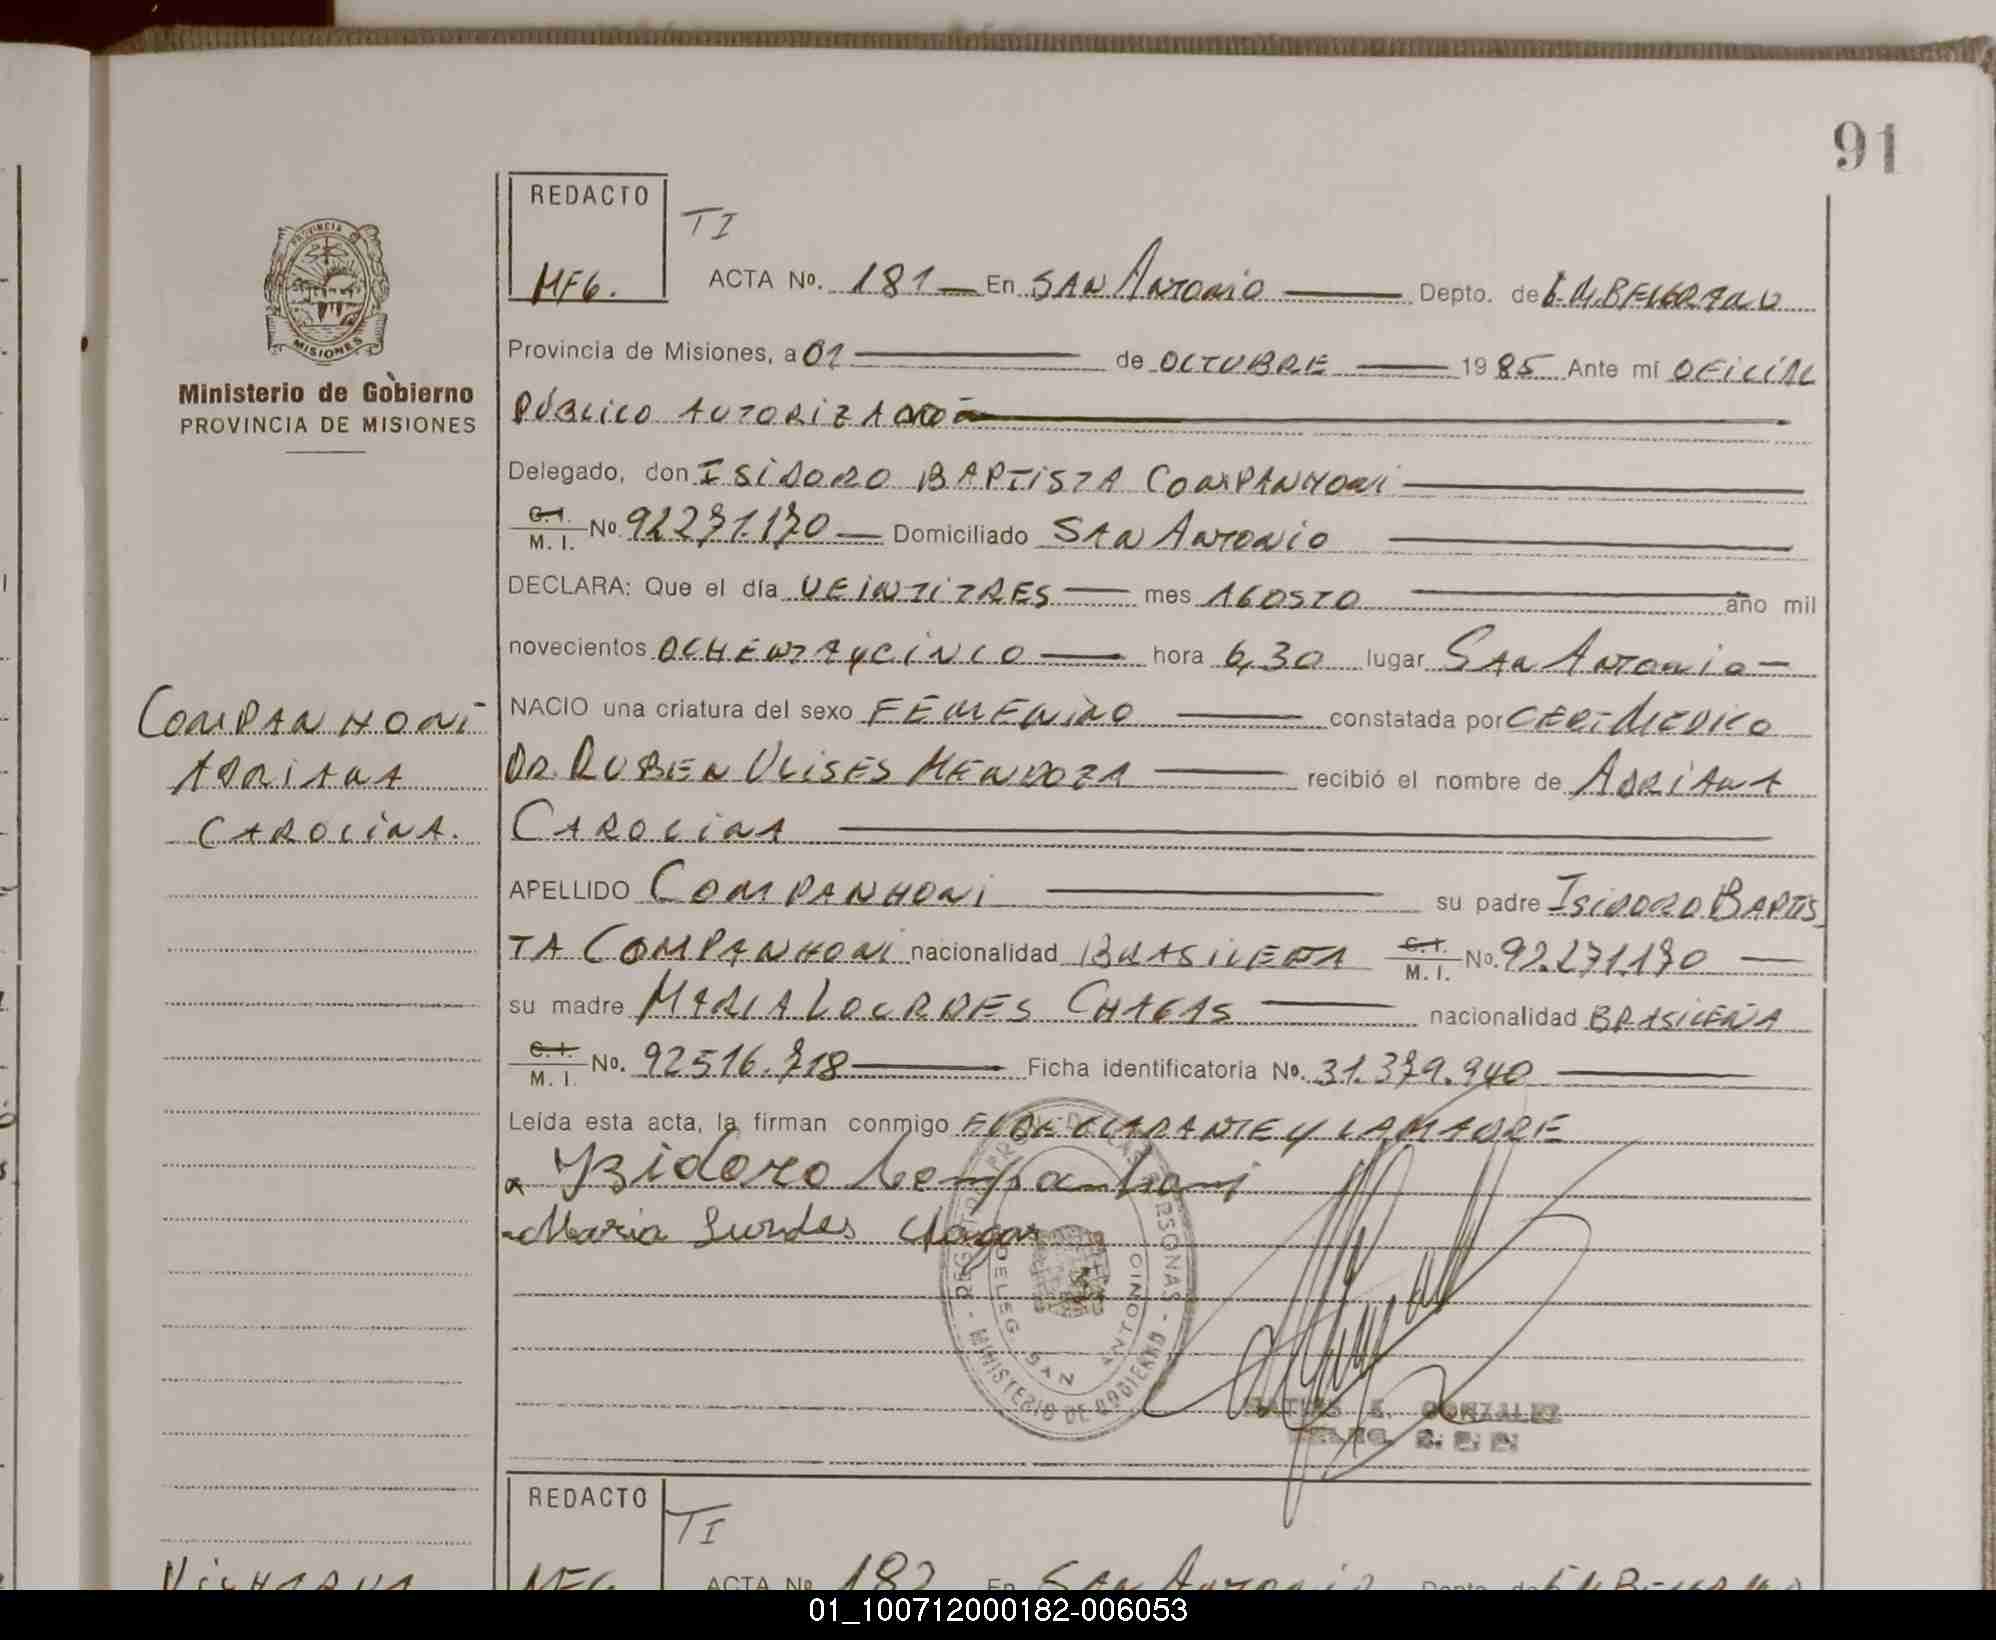 91
REDACTO
TI
MFG.
ACTA No. 181 En SAN ANTONIO Depto. de G.M.BELGRANO
PROVINCIA
MISIONES
Ministerio de Gobierno
PROVINCIA DE MISIONES
Provincia de Misiones, a 01 de OCTUBRE 1985 Ante mí OFICIAL
PÚBLICO AUTORIZADO
Delegado, don ISIDORO BAPTISTA COMPANHONI
C.I. M. I. No. 92271.170 Domiciliado SAN ANTONIO
DECLARA: Que el día VEINTITRES mes AGOSTO año mil
novecientos OCHENTAYCINCO hora 6,30 lugar SAN ANTONIO
COMPANHONI
ADRIANA
CAROLINA.
NACIO una criatura del sexo FEMENINO constatada por CERT MEDICO
DR. RUBEN ULISES MENDOZA recibió el nombre de ADRIANA
CAROLINA
APELLIDO COMPANHONI su padre ISIDORO BAPTIS
TA COMPANHONI nacionalidad BRASILEÑA C.I. M. I. No. 92.271.170
su madre MARIA LOURDES CHAGAS nacionalidad BRASILEÑA
C.I. M. I. No. 92516.718 Ficha identificatoria No. 31.379.940
Leída esta acta, la firman conmigo EL DECLARANTE Y LA MADRE
Izidoro Companhoni
Maria Lurdes Chagas
MINISTERIO DE GOBIERNO
DELEG. SAN ANTONIO
GONZALEZ
REDACTO
TI
MFG
ACTA No 182 En SAN ANTONIO Depto. de G.M.BELGRANO
01_100712000182-006053